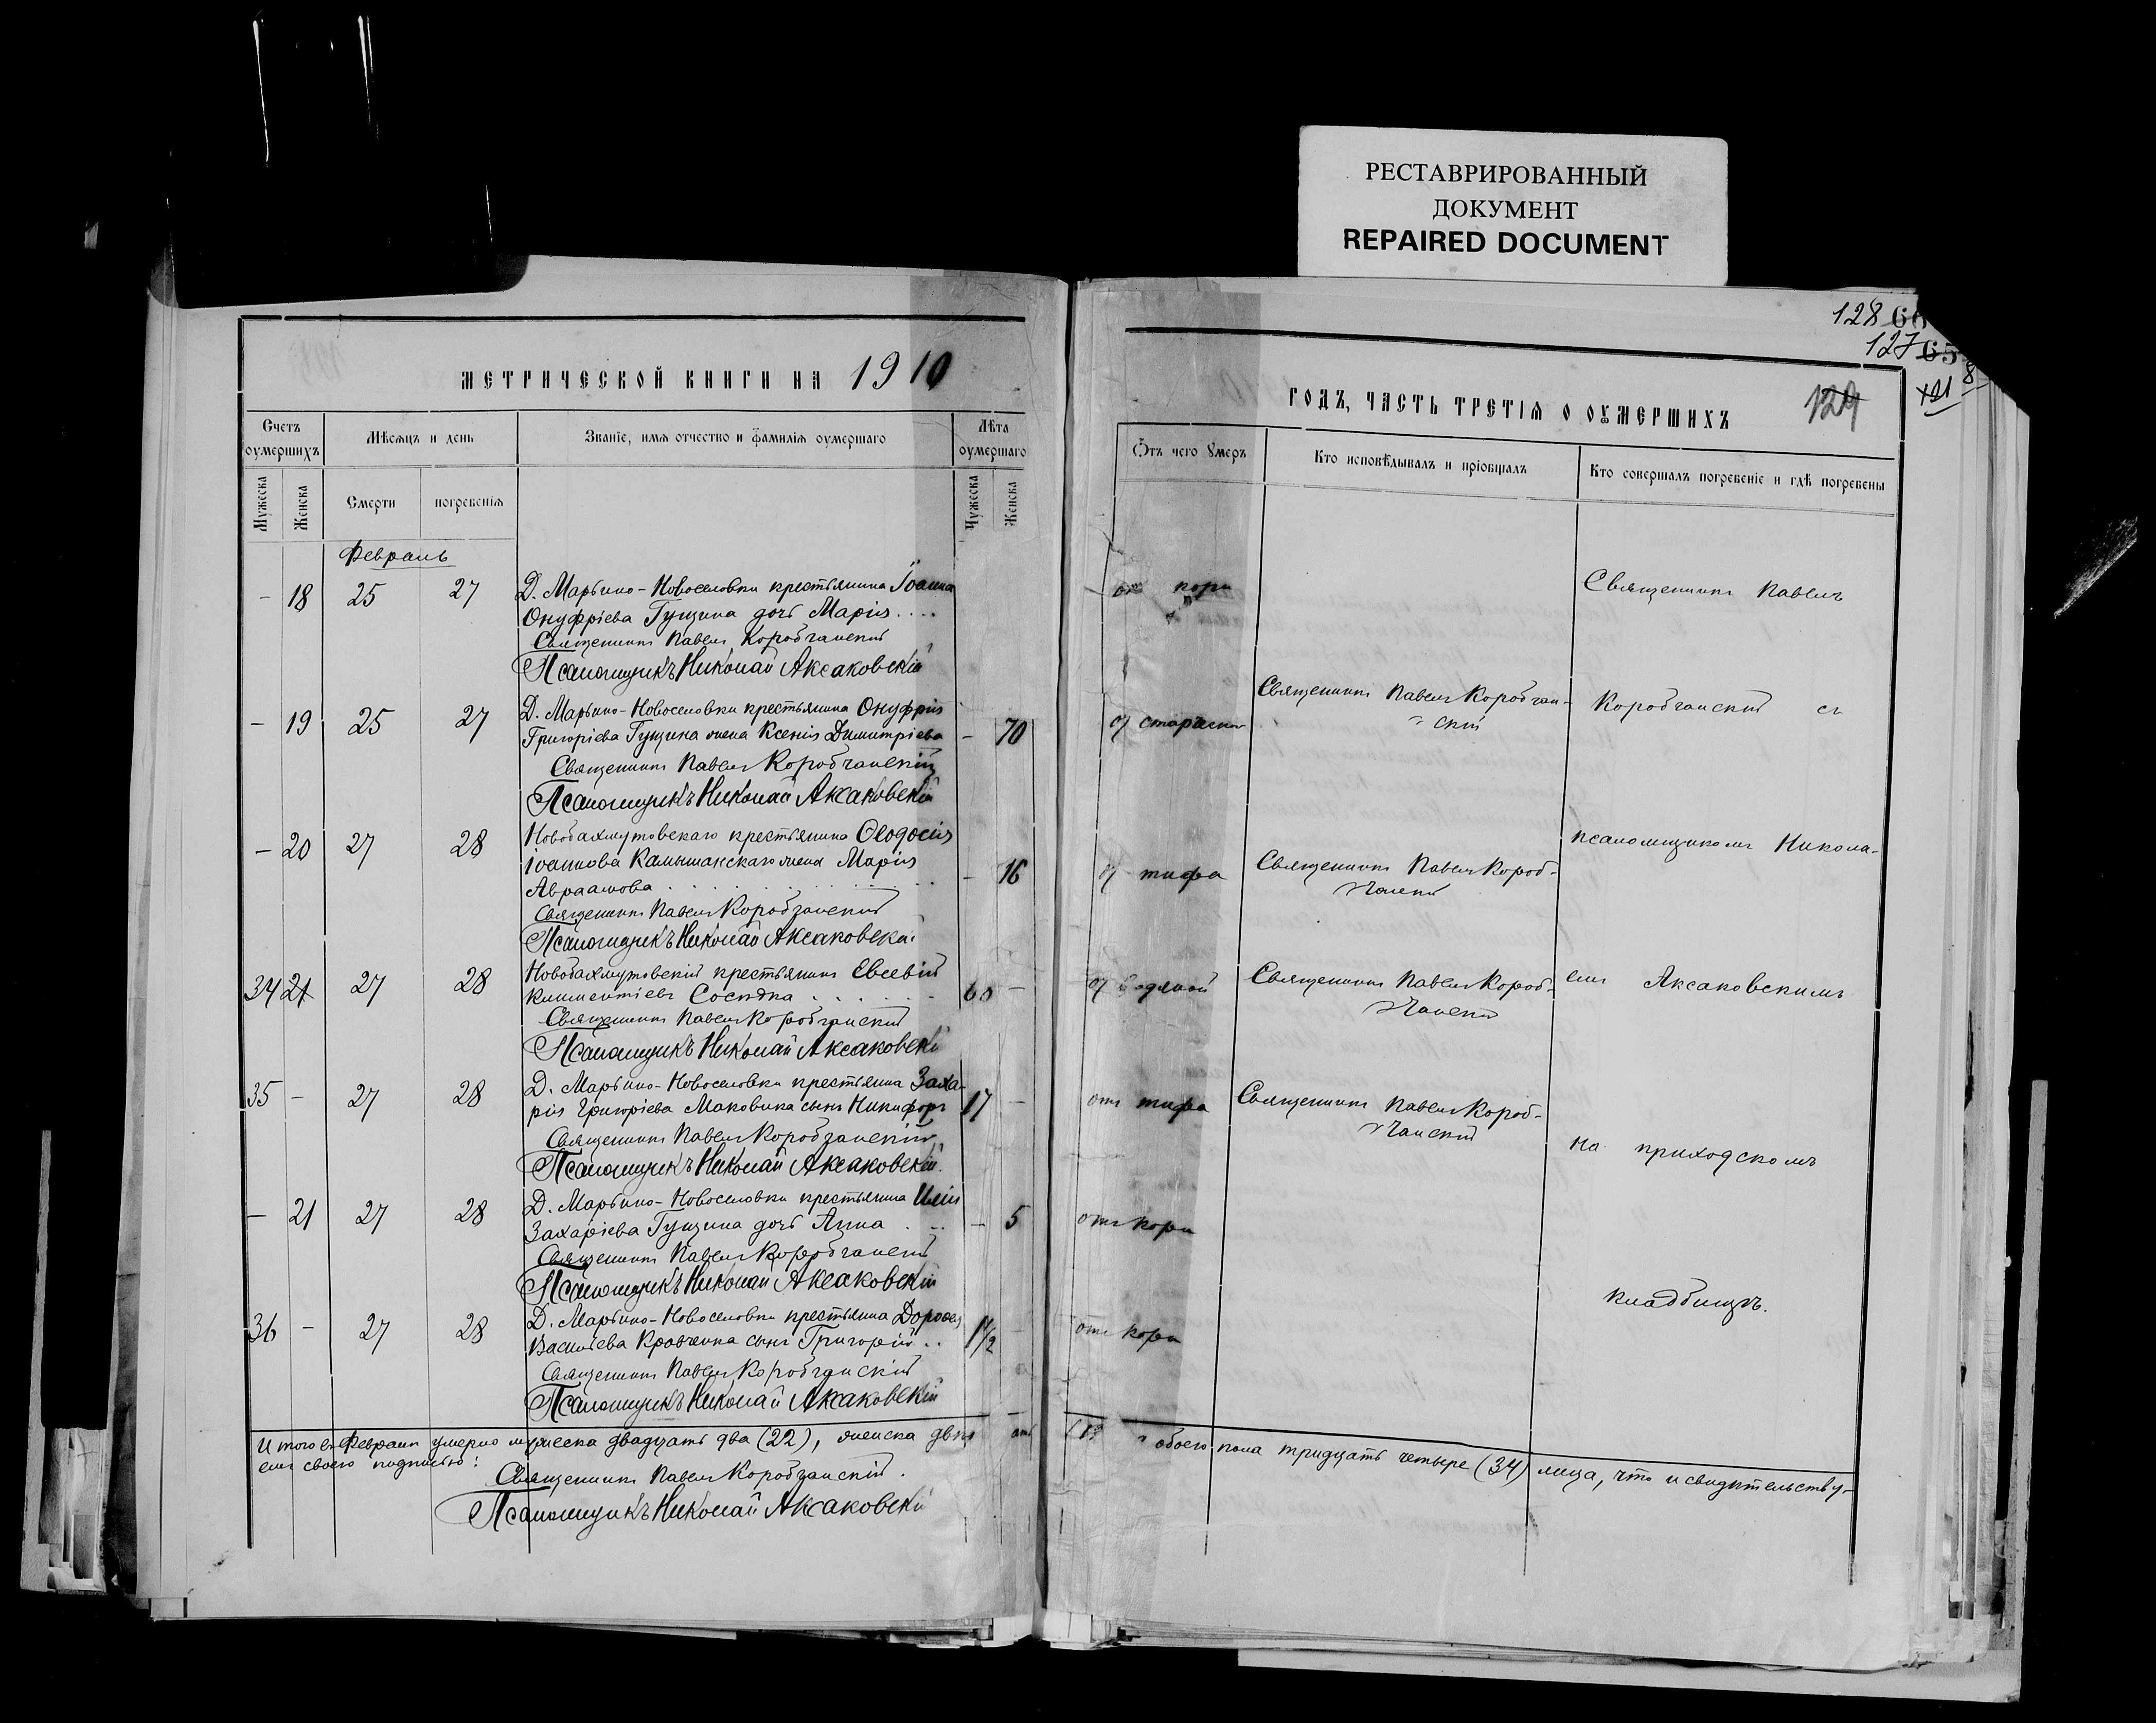 РЕСТАВРИРОВАННЫЙ
ДОКУМЕНТ
REPAIRED DOCUMENT
128 66
127 65
121 8
129
МЕТРИЧЕСКОЙ КНИГИ НА 1910
ГОДЪ, ЧАСТЬ ТРЕТІЯ О ОУМЕРШИХЪ
Счетъ оумершихъ
Мѣсяцъ и день
Званіе, имя отчество и фамилія оумершаго
Лѣта оумершаго
Отъ чего умеръ
Кто исповѣдывалъ и пріобщалъ
Кто совершалъ погребеніе и гдѣ погребены
Мужеска
Женска
Смерти
погребенія
Мужеска
Женска
Февраль
- 18 25 27 Д. Марьино-Новоселовки крестьянина Іоанна
Онуфріева Гунина дочь Марія....
от кори
Священникъ Павелъ
Священникъ Павелъ Коробчанскій
Псаломщикъ Николай Аксаковскій
- 19 25 27 Д. Марьино-Новоселовки крестьянина Онуфрія
Григоріева Гунина жена Ксенія Димитріева - 70
от старости
Священникъ Павелъ Коробчан-
скій
Коробчанскій съ
Священникъ Павелъ Коробчанскій
Псаломщикъ Николай Аксаковскій
- 20 27 28 Новобахмутовскаго крестьянина Ѳеодосія
Іоаннова Камышанскаго жена Марія
Авраамова - 16
от тифа
Священникъ Павелъ Короб-
чанскій
псаломщикомъ Никола-
Священникъ Павелъ Коробчанскій
Псаломщикъ Николай Аксаковскій
34 21 27 28 Новобахмутовскій крестьянинъ Евсевій
Климентіевъ Сосѣдка 60 -
от водяной
Священникъ Павелъ Короб-
чанскій
емъ Аксаковскимъ
Священникъ Павелъ Коробчанскій
Псаломщикъ Николай Аксаковскій
35 - 27 28 Д. Марьино-Новоселовки крестьянина Заха-
рія Григоріева Маковика сынъ Никифоръ 17 -
отъ тифа
Священникъ Павелъ Короб-
чанскій
на приходскомъ
Священникъ Павелъ Коробчанскій
Псаломщикъ Николай Аксаковскій.
- 21 27 28 Д. Марьино-Новоселовки крестьянина Иліи
Захаріева Гунина дочь Анна - 5
отъ кори
Священникъ Павелъ Коробчанскій
Псаломщикъ Николай Аксаковскій
кладбищѣ.
36 - 27 28 Д. Марьино-Новоселовки крестьянина Дороѳея
Васильева Кравченка сынъ Григорій.. 1½
отъ кори
Священникъ Павелъ Коробчанскій
Псаломщикъ Николай Аксаковскій
Итого въ Февралѣ умерло мужеска двадцать два (22), женска двѣ обоего пола тридцать четыре (34) лица, что и свидѣтельству-
емъ своею подписью:
Священникъ Павелъ Коробчанскій.
Псаломщикъ Николай Аксаковскій